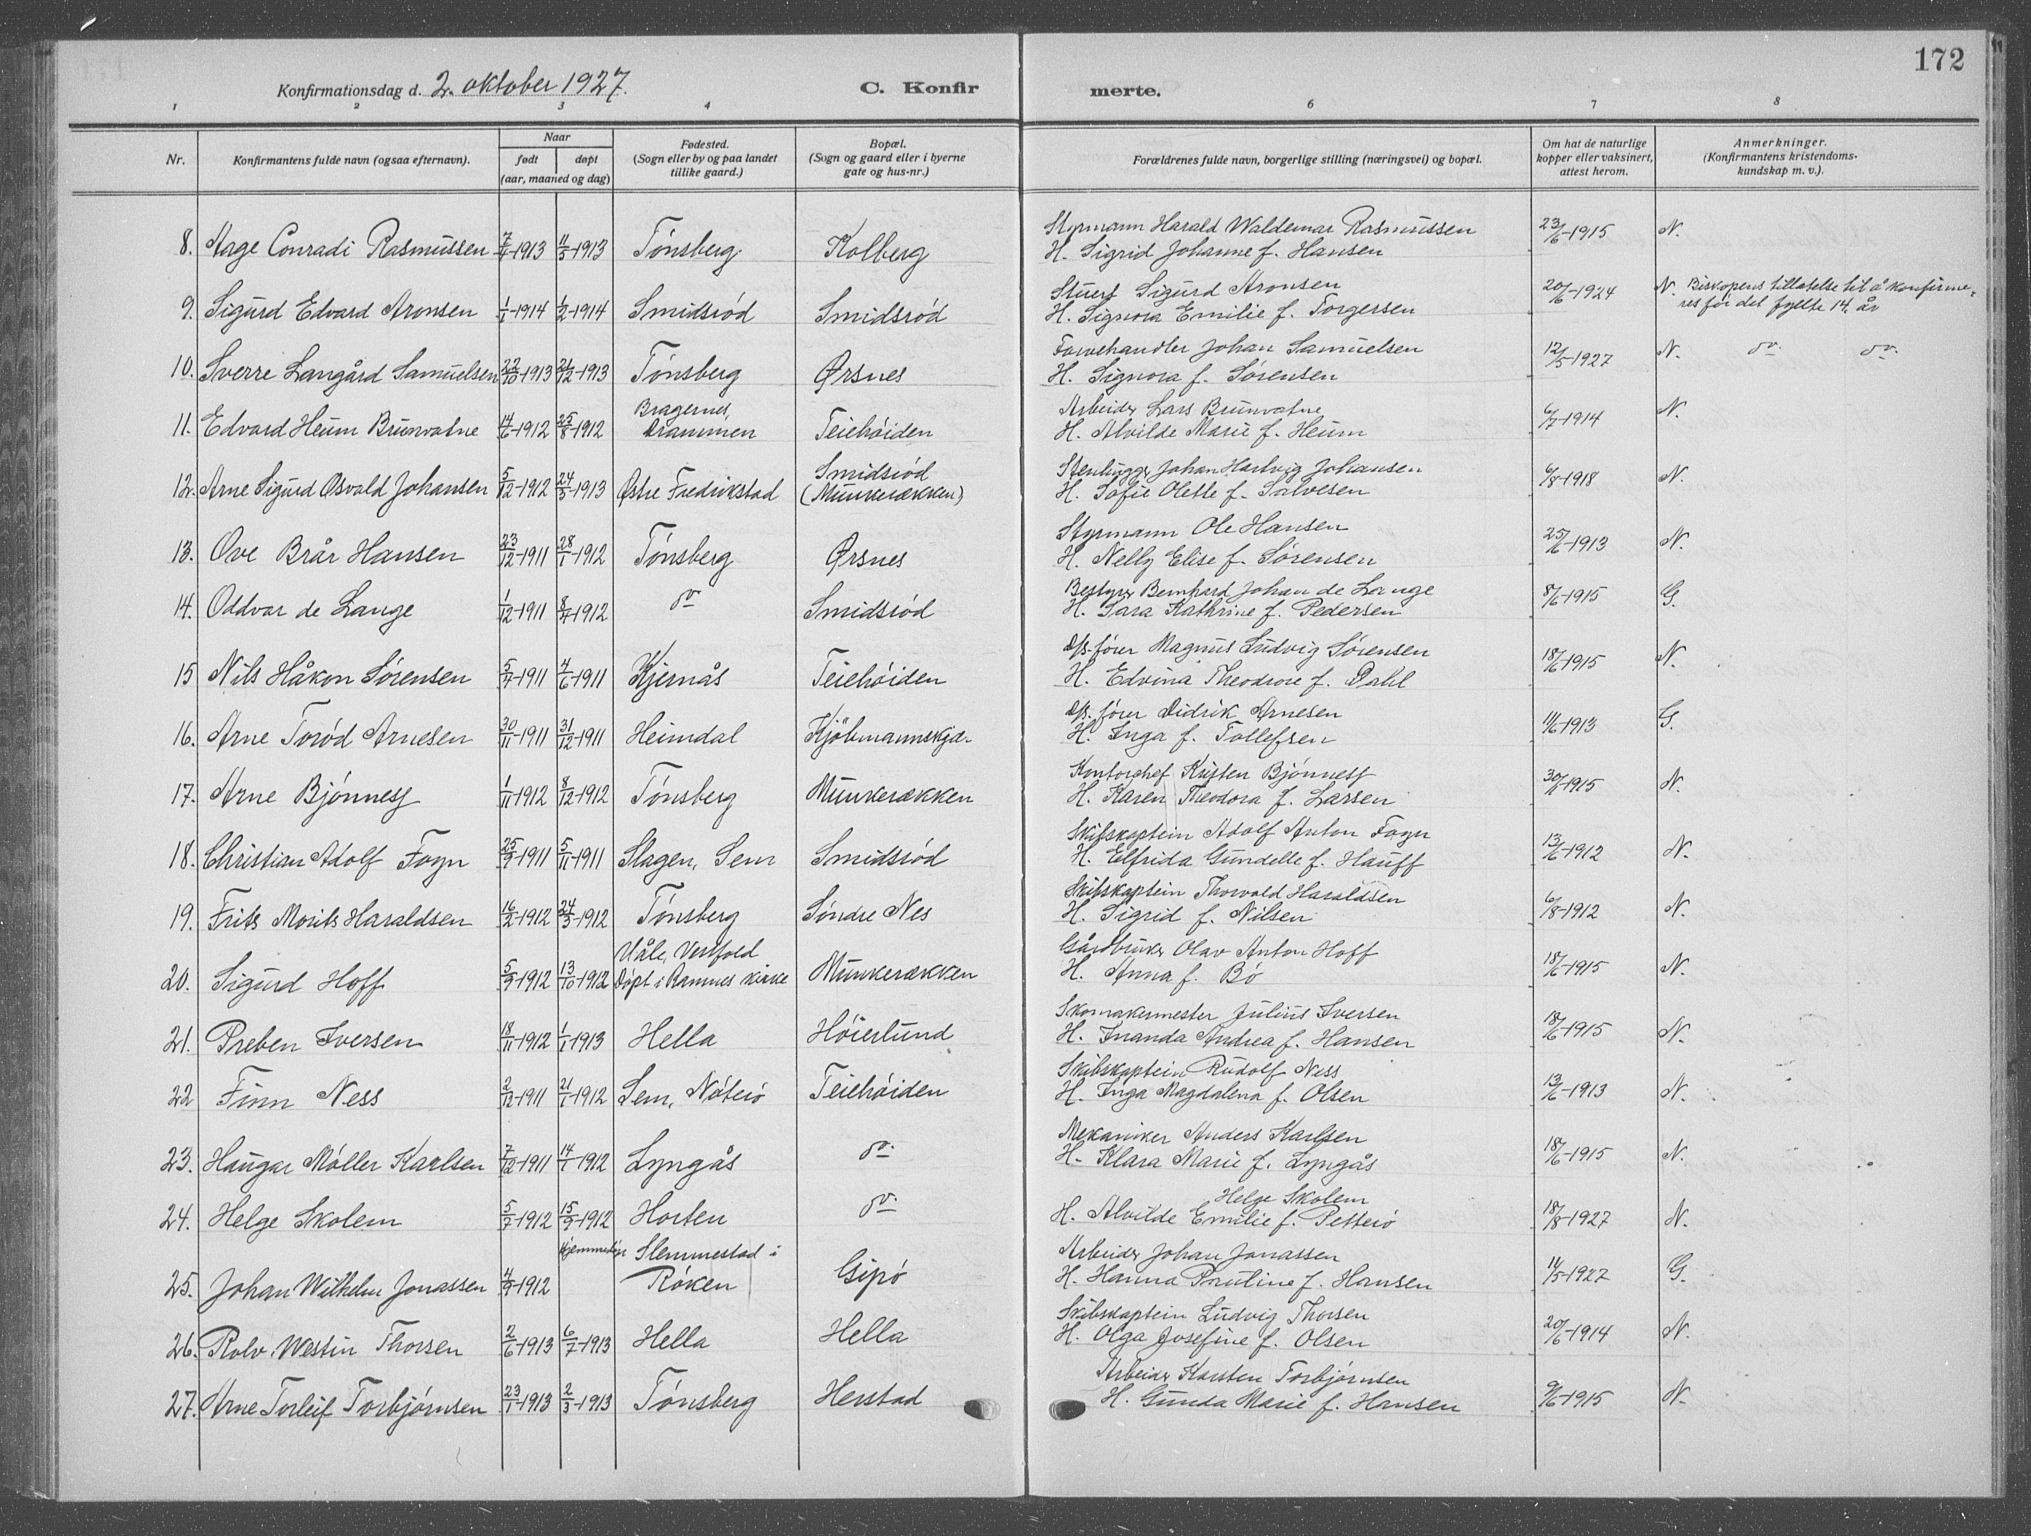 172
Konfirmationsdag d. 2. oktober 1927.
C. Konfirmerte.
1 2 3 4 6 7 8
Nr.
Konfirmantens fulde navn (ogsaa efternavn).
Naar
født døpt
(aar, maaned og dag)
Fødested.
(Sogn eller by og paa landet
tillike gaard.)
Bopæl.
(Sogn og gaard eller i byerne
gate og hus-nr.)
Forældrenes fulde navn, borgerlige stilling (næringsvei) og bopæl.
Om hat de naturlige
kopper eller vaksinert,
attest herom.
Anmerkninger.
(Konfirmantens kristendoms-
kundskap m. v.).
8. Aage Conradi Rasmussen 7/4-1913 11/5-1913 Tønsberg Kolberg
Styrmann Harald Waldemar Rasmussen
H. Sigrid Johanne f. Hansen 23/6-1915 N.
9. Sigurd Edvard Aronsen 1/1-1914 1/2-1914 Smidsrød Smidsrød
Stuert Sigurd Aronsen
H. Signora Emilie f. Torgersen 20/6-1924 N. Biskopens tillatelse til å konfirme-
res før det fyllte 14. år
10. Sverre Langård Samuelsen 22/10-1913 21/12-1913 Tønsberg Ørsnes
Farvehandler Johan Samuelsen
H. Signora f. Sørensen 12/5-1927 N. do. do.
11. Edvard Heum Brunvatne 14/6-1912 25/8-1912 Bragernes, Drammen Teiehøiden
Arbeider Lars Brunvatne
H. Alvilde Marie f. Heum 6/7-1914 N.
12. Arne Sigurd Osvald Johansen 5/12-1912 24/3-1913 Østre Fredrikstad Smidsrød (Munkerækken)
Stenhugger Johan Hartvig Johansen
H. Sofie Olette f. Salvesen 6/8-1918 N.
13. Ove Brår Hansen 23/12-1911 28/1-1912 Tønsberg Ørsnes
Styrmann Ole Hansen
H. Nelly Elise f. Sørensen 25/6-1913 N.
14. Oddvar de Lange 1/12-1911 8/4-1912 do Smidsrød
Bestyrer Bernhard Johan de Lange
H. Sara Kathrine f. Pedersen 8/6-1915 G.
15 Nils Håkon Sørensen 5/4-1911 4/6-1911 Kjernås Teiehøiden
D/s. fører Magnus Ludvig Sørensen
H. Edvina Theodore f. Dahl 18/6-1915 N.
16. Arne Torød Arnesen 30/11-1911 31/12-1911 Heimdal Kjøbmannskjæ-
D/s. fører Didrik Arnesen
H. Inga f. Tollefsen 11/6-1913 G.
17. Arne Bjønness 1/11-1912 8/12-1912 Tønsberg Munkerækken
Kontorchef Kristen Bjønness
H. Karen Theodora f. Larsen 30/6-1915 N.
18. Christian Adolf Fagn 25/9-1911 5/11-1911 Slagen, Sem Smidsrød
Skibskaptein Adolf Anton Fagn
H. Elfrida Gundelle f. Hauff 13/6-1912 N.
19. Frits Morits Haraldsen 16/2-1912 24/3-1912 Tønsberg Søndre Nes
Skibskaptein Thorvald Haraldsen
H. Sigrid f. Nilsen 6/8-1912 N.
20. Sigurd Hoff 5/9-1912 13/10-1912 Våle, Vestfold Døpt i Ramnes kirke Munkerækken
Gårdbruker Olav Anton Hoff
H. Anna f. Bø 18/6-1915 N.
21. Preben Iversen 18/11-1912 1/1-1913 Hella Høierlund
Skomakermester Julius Iversen
H. Inanda Andrea f. Hansen 18/6-1915 N.
22 Finn Ness 2/12-1911 21/1-1912 Sem, Nøterø Teiehøiden
Skibskaptein Rudolf Ness
H. Inga Magdalena f. Olsen 13/6-1913 N.
23. Haugar Møller Karlsen 7/12-1911 14/1-1912 Lyngås do.
Mekaniker Anders Karlsen
H. Klara Marie f. Lyngås 18/6-1915 N.
24. Helge Skolem 5/7-1912 15/9-1912 Horten do.
Helge Skolem
H. Alvilde Emilie f. Petterø 18/8-1927 N.
25. Johan Wilhelm Jonassen 4/9-1912 Hjemmedøpt Slemmestad i Røken Gipø
Arbeider Johan Jonassen
H. Hanna Pauline f. Hansen 11/5-1927 G.
26. Rolv Westin Thorsen 2/6-1913 6/7-1913 Hella Hella
Skibskaptein Ludvig Thorsen
H. Olga Josefine f. Olsen 20/6-1914 N.
27. Arne Torleif Torbjørnsen 23/1-1913 2/3-1913 Tønsberg Herstad
Arbeider Karsten Torbjørnsen
H. Gunda Marie f. Hansen 9/6-1915 N.